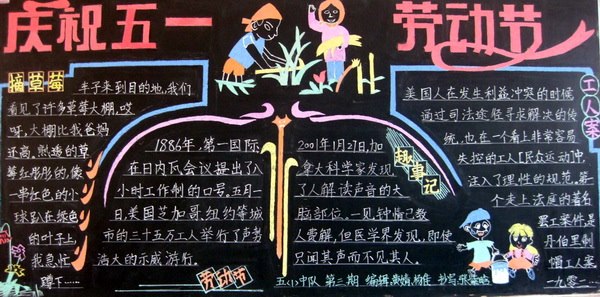 庆祝五一 劳动节
摘草莓
车子来到目的地,我们
看见了许多草莓大棚,哎
呀,大棚比我爸妈
还高,熟透的草
莓红彤彤的,像
一串红色的小
球趴在绿色
的叶子上,
我急忙
蹲下……
1886年,第一国际
在日内瓦会议提出了八
小时工作制的口号。五月一
日,美国芝加哥纽约等城
市的三十五万工人举行了声势
浩大的示威游行。
劳动节
2001年1月27日,加
拿大科学家发现
了人解读声音的大
脑部位。一见钟情已数
人费解,但医学界发现,即使
只闻其声而不见其人。
趣事记
工人案
美国人在发生利益冲突的时候
通过司法途径寻求解决的传
统,也在一个看上非常容易
失控的工人民众运动中,
注入了理性的规范。第
一个走上法庭的著名
罢工案件是
丹伯里制
帽工人案
一九〇二
五(1)中队 第三期 编辑: